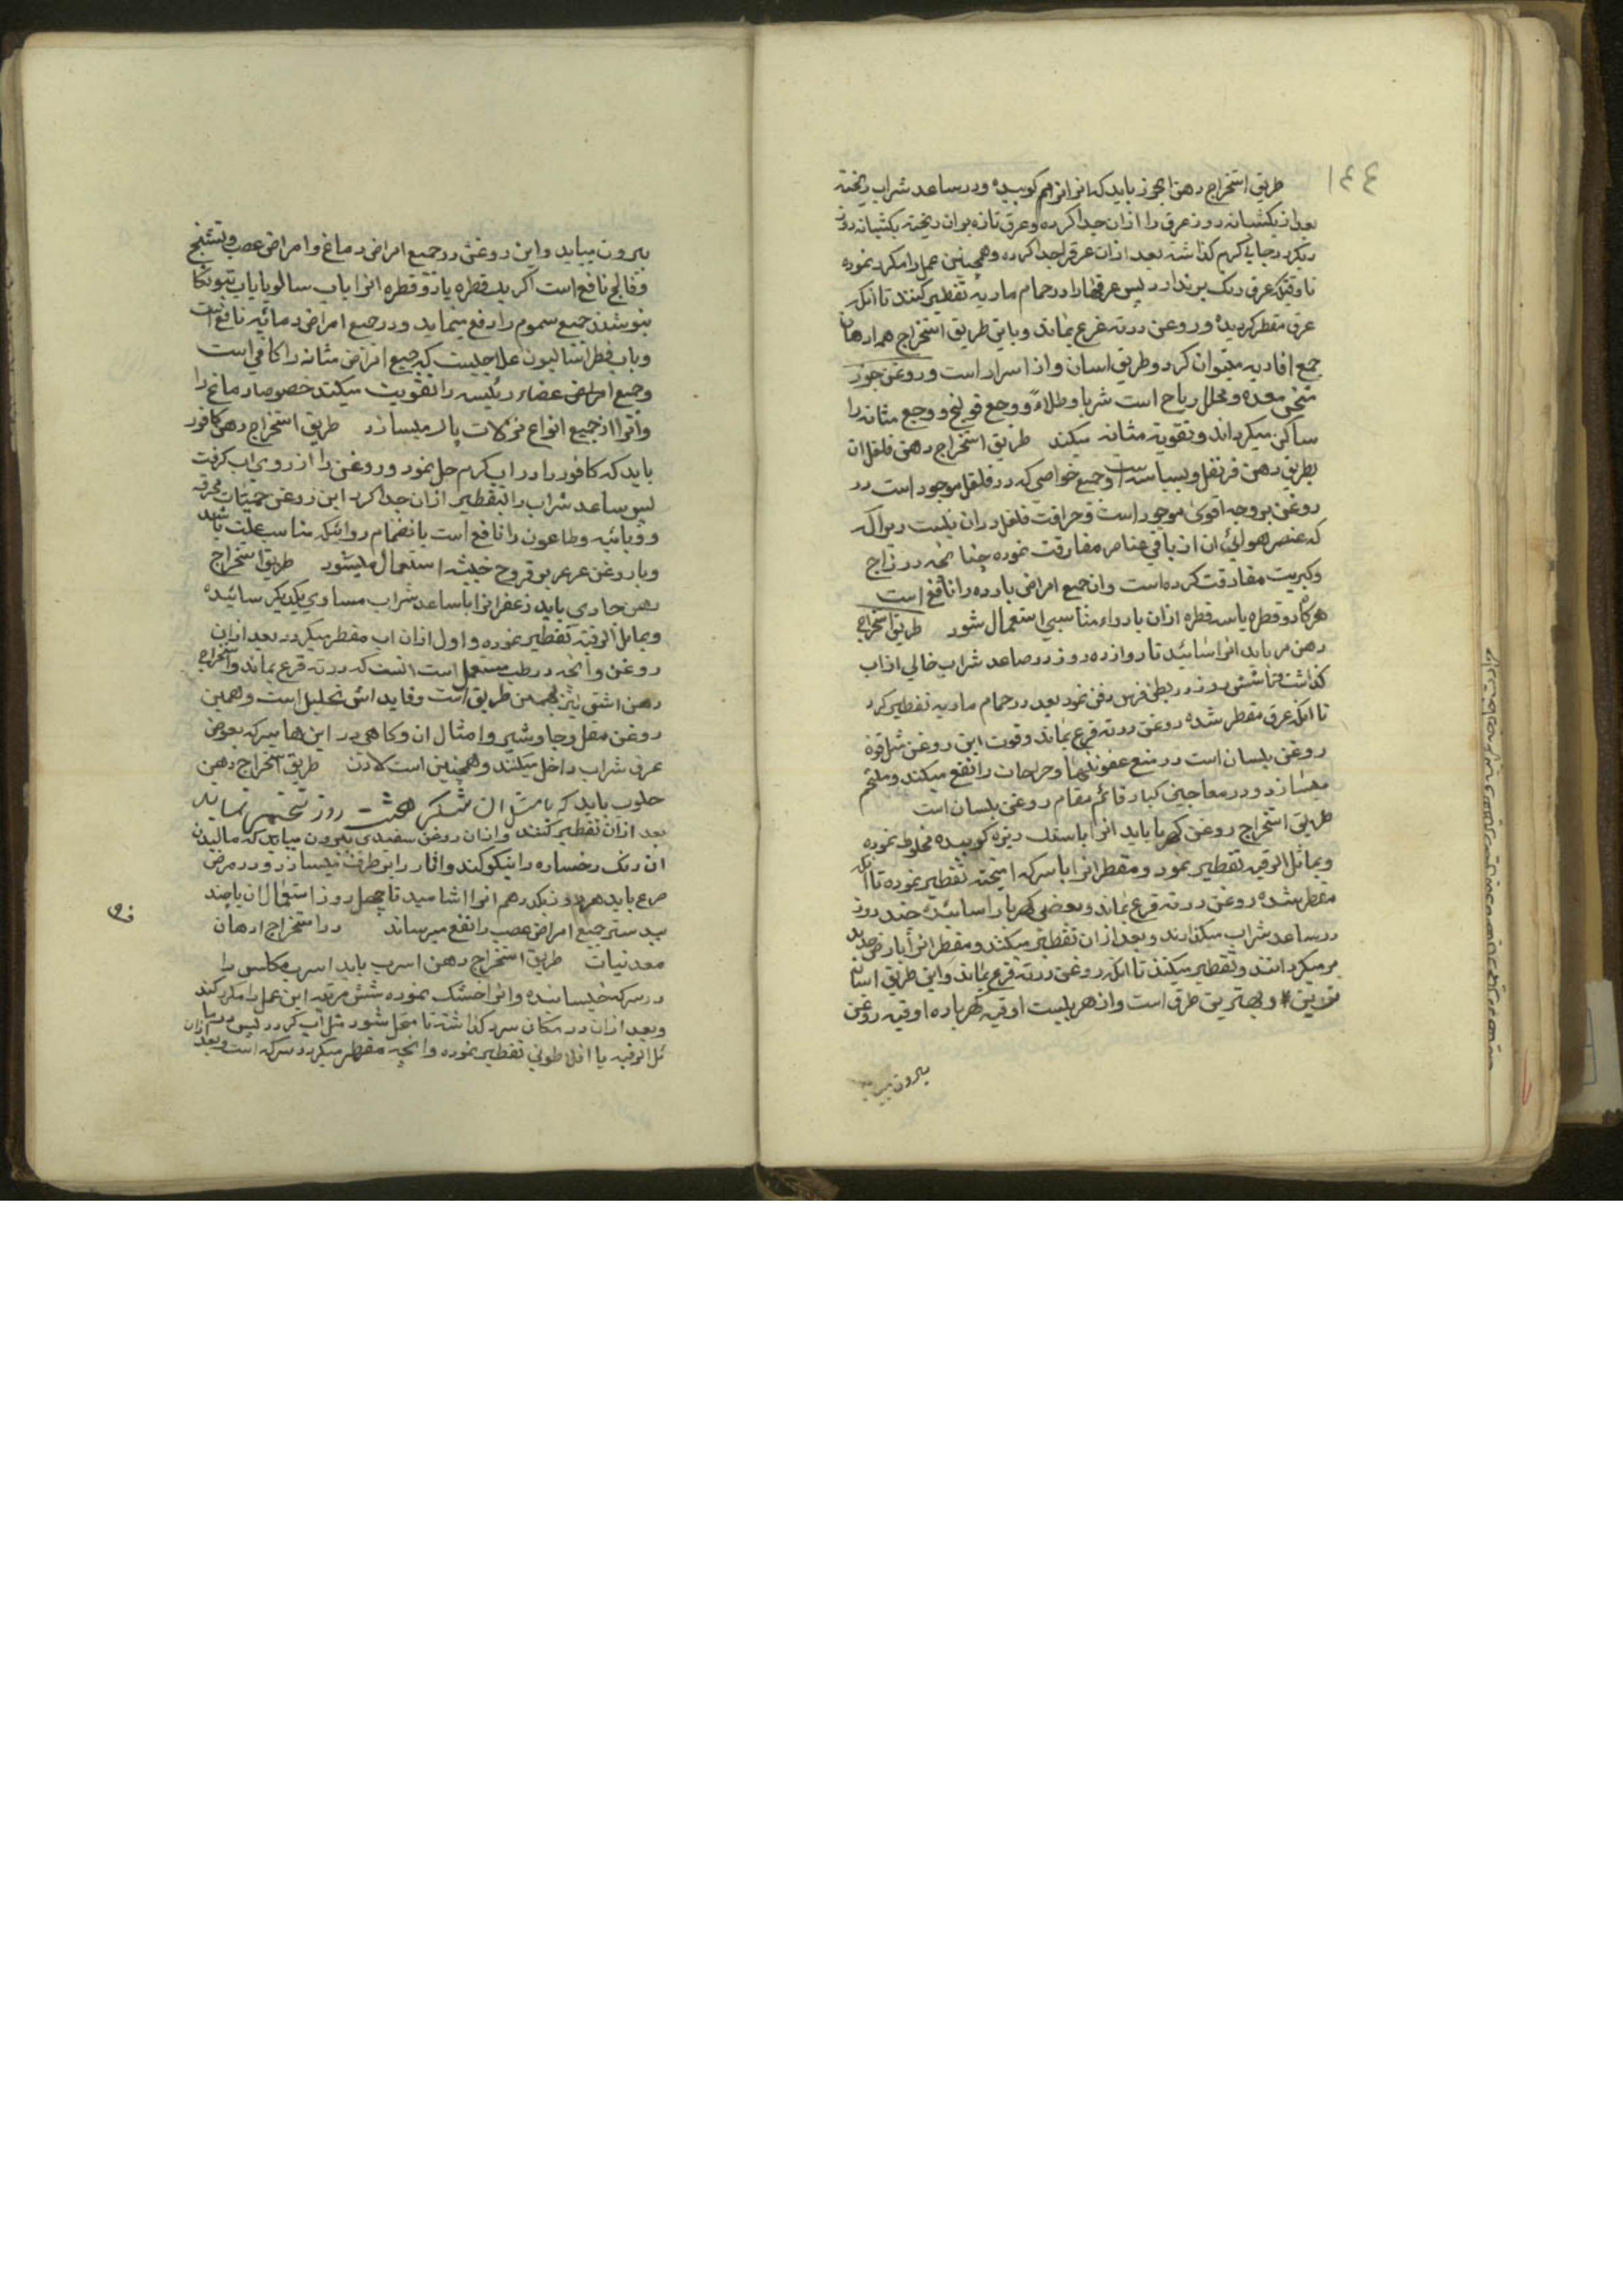 ١٤٤
طریق استخراج دهن الجوز باید که انرا نرم کوبیده و در ساعد شراب ریخته
بعد از یکشبانه روز عرق را ازان جدا کرده و عرق تازه بران ریخته یکشبانه روز
دیکر در جایی کرم کذاشته بعد ازان عرقرا جدا کرده و همچنین عمل را مکرر نموده
تا وقتیکه عرق رنک برندارد پس عرقها را در حمام ماریه تقطیر کنند تا انکه
عرق مقطر کردیده و روغن در ته قرع بماند و باین طریق استخراج همه ادهان
جمیع افاویه میتوان کرد و طریق اسان و از اسرار است و روغن جوز
مسخن معده و محلل ریاح است شربا و طلاءً و وجع قولنج و وجع مثانه را
ساکن میکرداند و تقویة مثانه میکند طریق استخراج دهن فلفل ان
بطریق دهن قرنفل و بسباسه است و جمیع خواصی که در فلفل موجود است در
روغن بر وجه اقوی موجود است و حرافت فلفل دران نیست
که عنصر هوائی ان از باقی عناصر مفارقت نموده چنانچه در زاج
و کبریت مفارقت کرده است وان جمیع امراض بارده را نافع است
هرکاه دو قطره یا سه قطره ازان با دواء مناسبی استعمال شود طریق استخراج
دهن مر باید انرا سائید تا دوازده روز در صاعد شراب خالی از اب
کذاشت تا شش روز در بطن فرس دفن نمود بعد در حمام ماریه تقطیر کرد
تا انکه عرق مقطر شده روغن در ته قرع بماند و قوت این روغن مثل قوة
روغن بلسان است در منع عفونتها و جراحات را نفع میکند و ملتحم
میسازد و در معاجین کبار قائم مقام روغن بلسان است
طریق استخراج روغن کهربا باید انرا با سنک ریزه کوبیده مخلوط نموده
و بمائل الرقبه تقطیر نمود و مقطر انرا با سرکه امیخته تقطیر نموده تا انکه
مقطر شده روغن در ته قرع بماند و بعضی کهربا را سائیده چند روز
در ساعد شراب میکذارند و بعد ازان تقطیر میکنند و مقطر انرا بارض جدید
بر میکردانند و تقطیر میکنند تا انکه روغن در ته قرع بماند و این طریق اسان
ترین و بهترین طرق است و از هر بیست اوقیه کهربا ده اوقیه روغن
بیرون میاید
بیرون میاید و این روغن در جمیع امراض دماغ و امراض عصب و تشنج
و فالج نافع است اکر یک قطره یا دو قطره انرا با اب سالویا یا اب بتونکا
بنوشند جمیع سموم را دفع مینماید و در جمیع امراض دماغیه نافع است
و باب فطراسالیون علاجیست که جمیع امراض مثانه را کافی است
و جمیع امراض اعضاء رئیسه را تقویت میکند خصوصا دماغ را
و انرا از جمیع انواع نزلات پاک میسازد طریق استخراج دهن کافور
باید که کافور را در اب کرم حل نمود و روغن را از روی اب کرفت
پس ساعد شراب را بتقطیر ازان جدا کرد این روغن حمیات محرقه
و وبائیه و طاعون را نافع است بانضمام دوائیکه مناسب علت باشد
و با روغن عرعر بر قروح خبیثه استعمال میشود طریق استخراج
دهن جاوی باید زعفرانرا با ساعد شراب مساوی یکدیکر سائیده
و بمائل الرقبه تقطیر نموده و اول ازان اب مقطر میکردد بعد ازان
روغن و انچه در طب مستعمل است انست که در ته قرع بماند و استخراج
دهن اشق نیز بهمین طریق است و فایده اش تحلیل است و همین
روغن مقل و جاوشیر و امثال ان و کاهی در این ها سرکه بعوض
عرق شراب داخل میکنند و همچنین است لادن طریق استخراج دهن
حلوب باید که با مثل ان شکر هشت روز تخمیر نماید
بعد ازان تقطیر کنند و ازان روغن سفیدی بیرون میاید که مالیدن
ان رنک رخساره را نیکو کند و اثار را برطرف میسازد و در مرض
صرع باید هر روز یکدرهم انرا اشامید تا چهل روز استعمال ان با جند
بیدستر جمیع امراض عصب را نفع میرساند در استخراج ادهان
معدنیات طریق استخراج دهن اسرب باید اسرب مکلس را
در سرکه خیسانیده و انرا خشک نموده شش مرتبه این عمل را مکرر کند
و بعد ازان در مکان سرد کذاشته تا منحل شود مثل اب کردد پس
ئل الرقبه یا افلاطونی تقطیر نموده و انچه مقطر میکردد سرکه است و بعد ازان